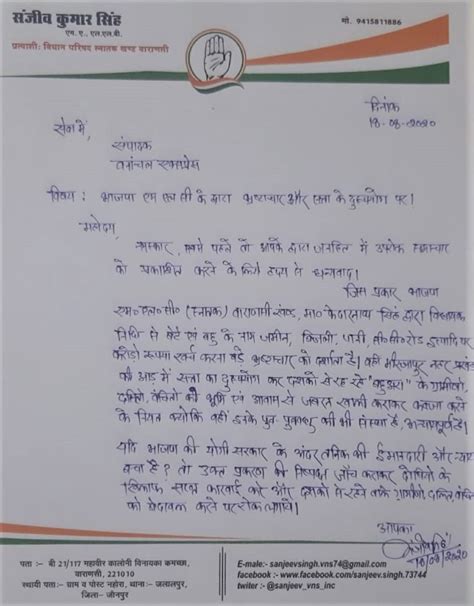 संजीव कुमार सिंह
एम. ए., एल.एल.बी.
प्रत्याशी: विधान परिषद स्नातक खण्ड वाराणसी
मो. 9415811886
दिनांक
18-08-2020
सेवा में,
संपादक
वनांचल एक्सप्रेस
विषय : भाजपा एम एल सी के द्वारा भ्रष्टाचार और सत्ता के दुरुपयोग पर।
महोदय,
नमस्कार, सबसे पहले तो आपके द्वारा जनहित में उपरोक्त समाचार
को प्रकाशित करने के लिये हृदय से धन्यवाद।
जिस प्रकार भाजपा
एम०एल०सी० (स्नातक) वाराणसी खण्ड, मा० केदारनाथ सिंह द्वारा विधायक
निधि से बेटे एवं बहु के नाम जमीन, बिजली, पानी सी०सी०रोड इत्यादि पर
करोडो रूपया खर्च करना बडे भ्रष्टाचार को दर्शाता है। वही मीरजापुर
की आड में सत्ता का दुरुपयोग कर दशको से रह रहे के ग्रामीणों
दलितो, वंचितों की भूमि एवं आवास से जबरन खाली कराकर कब्जा करने
के लिए क्योकि वहाँ इनके पुत्र की भी संस्था है,
यदि भाजपा की योगी सरकार के अंदर तनिक भी ईमानदारी और
बचा है? तो उक्त प्रकरण की निष्पक्ष जाँच कराकर दोषियो के
खिलाफ सख्त कारवाई करे और दशको से रहने वाले ग्रामीणो दलित, वंचित
को बेदखल करने पर रोक लगाये।
आपका
18/08/2020
पता :- बी 21/117 महावीर कालोनी विनायका कमच्छा,
वाराणसी, 221010
स्थायी पता :- ग्राम व पोस्ट नहोरा, थाना:- जलालपुर,
जिला:- जौनपुर
E-male:- sanjeevsingh.vns74@gmail.com
facebook :- www.facebook.com/sanjeev.singh.73744
twiter :- @sanjeev_vns_inc